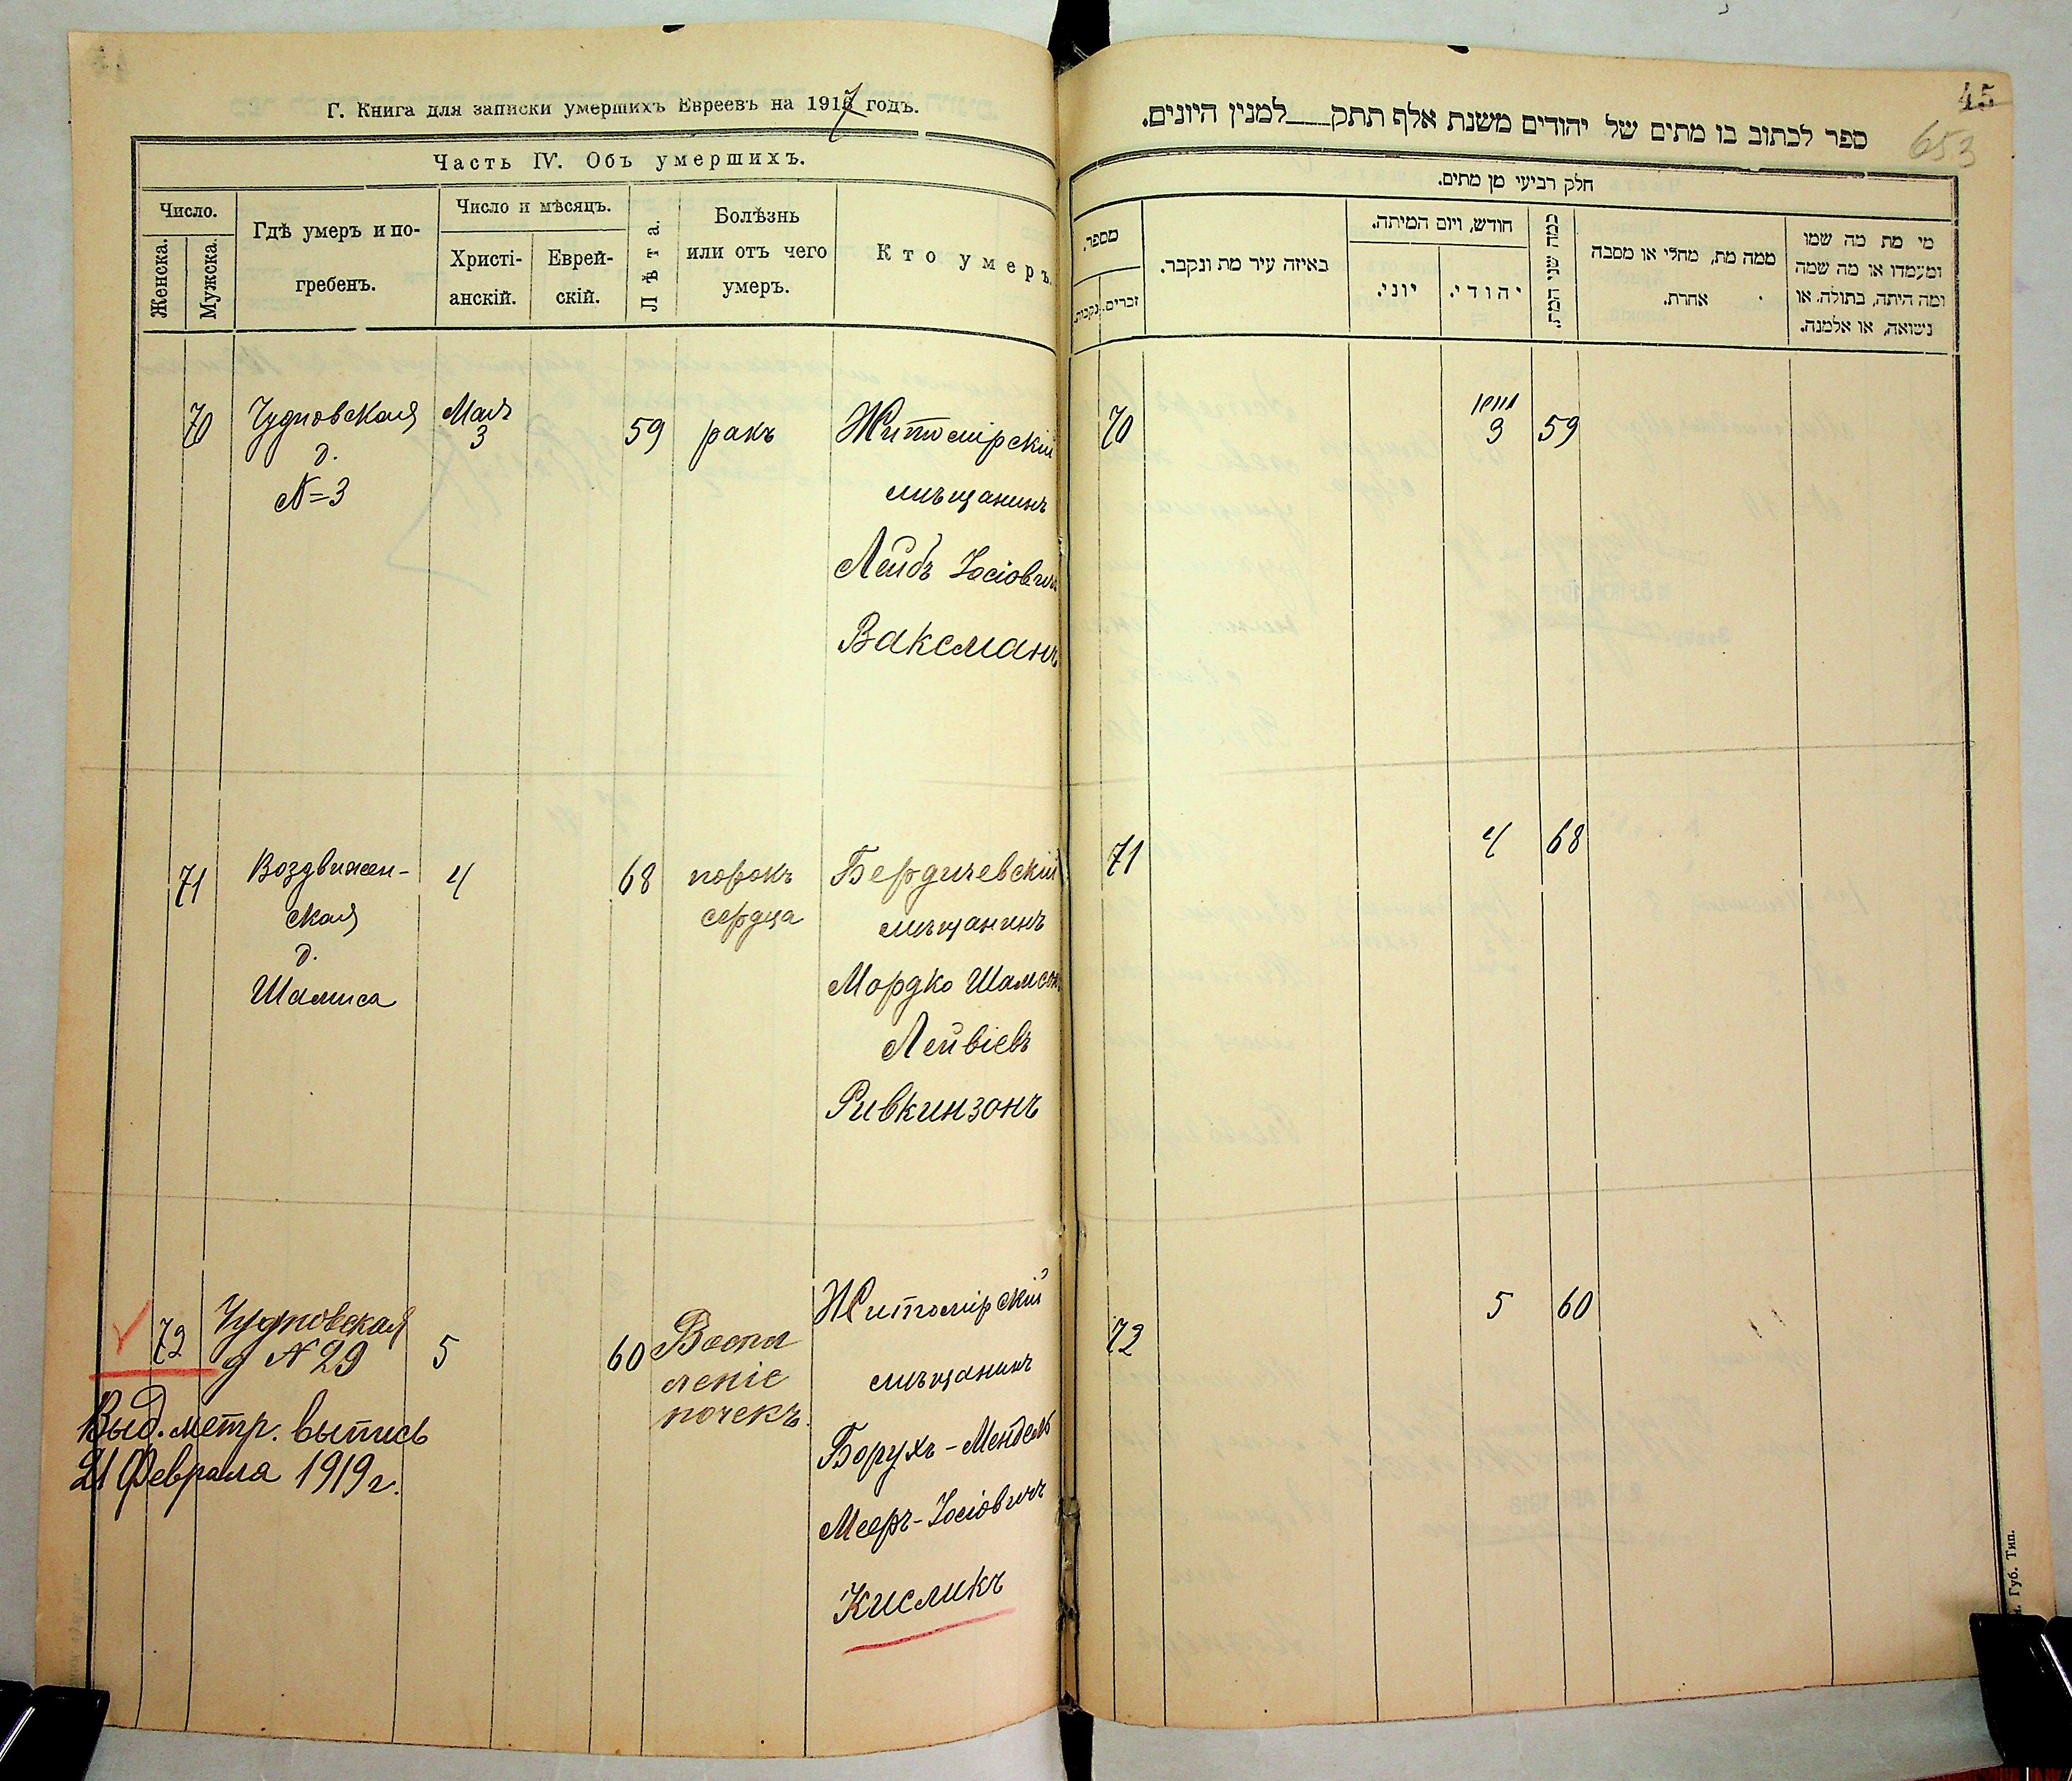 Г. Книга для записки умершихъ Евреевъ на 1917 годъ.
Часть IV. Объ умершихъ.
Число.
Женска.
Мужска.
Гдѣ умеръ и по-
гребенъ.
Число и мѣсяцъ.
Христі-
анскій.
Еврей-
скій.
Лѣта.
Болѣзнь
или отъ чего
умеръ.
Кто умеръ.
70
Чудновская
д.
№ 3
Мая
3
59
ракъ
Житомірскій
мѣщанинъ
Лейбъ Іосіовичъ
Ваксманъ
71
Воздвижен-
ская
д.
Шамиса
4
68
порокъ
сердца
Бердичевскій
мѣщанинъ
Мордко Шамсон
Лейвіевъ
Ривкинзонъ
72
Чудновская
д № 29
5
60
Воспа
леніе
почекъ.
Житомірскій
мѣщанинъ
Борухъ-Мендель
Мееръ-Іосіовичъ
Кисликъ
Выд. метр. выпись
21 Февраля 1919 г.
45
653
ספר לכתוב בו מתים של יהודים משנת אלף תתק___למנין היונים.
חלק רביעי מן מתים.
מספר,
זכרים.
נקבות.
באיזה עיר מת ונקבר.
חודש, ויום המיתה.
יוני.
יהודי.
כמה שני המת.
ממה מת, מחלי או מסבה
אחרת.
מי מת מה שמו
ומעמדו או מה שמה
ומה היתה, בתולה, או
נשואה, או אלמנה.
70
3
59
71
4
68
72
5
60
Губ. Тип.